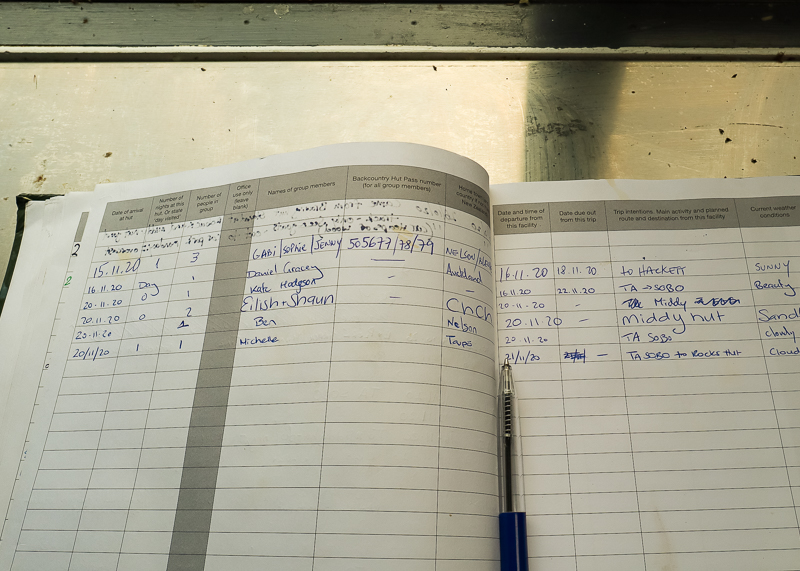 Date of arrival at hut Number of nights at this hut. Or state day visited Number of people in group Office use only (leave blank) Names of group members Backcountry Hut Pass number (for all group members) Date and time of departure from this facility Date due out from this trip Trip intentions. Main activity and planned route and destination from this facility Current weather conditions
2
15.11.20 1 3 GABI/SOPHIE/JENNY 505677/78/79 NELSON 16.11.20 18.11.20 to HACKETT SUNNY
16.11.20 Day 1 Daniel Gracey - Auckland 16.11.20 22.11.20 TA → SOBO Beauty
20.11.20 0 1 Kate Hodgson - 20.11.20 - Middy
20.11.20 0 2 Eilish + Shaun - ChCh 20.11.20 - Middy hut Sand
20.11.20 1 Ben Nelson 20.11.20 TA SOBO cloudy
20/11/20 1 1 Michelle Taupo 21/11/20 - TA SOBO to Rocks Hut Cloud